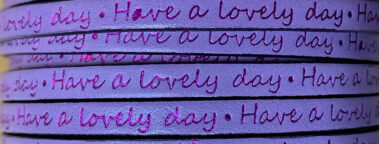 lovely day • Have a lovely day • Have
lovely day • Have a lovely day • Have a
day • Have a lovely day • Have a lo
a lovely day • Have a lovely